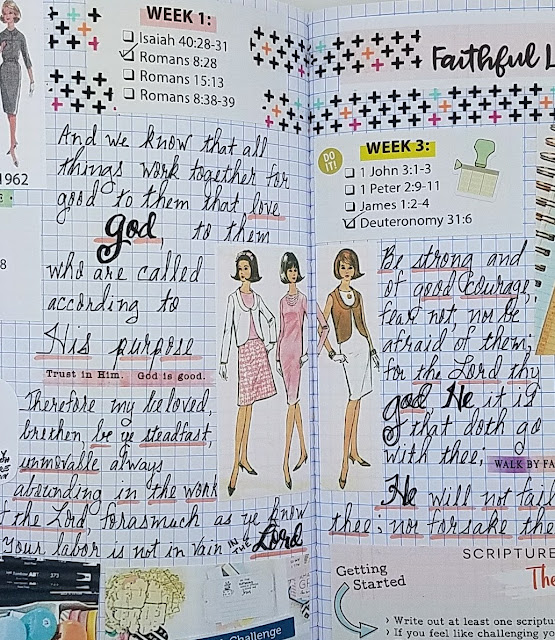 WEEK 1:
Isaiah 40:28-31
Romans 8:28
Romans 15:13
Romans 8:38-39
1962
8
And we know that all
things work together for
good to them that love
God, to them
who are called
according to
His purpose
Trust in Him. God is good.
Therefore my beloved,
brethen, be ye steadfast,
unmovalle always
abounding in the work
f the Lord, forasmuch as ye know
Your labor is not in vain IN THE Lord
Challenge
Faithful L
DO IT!
WEEK 3:
1 John 3:1-3
1 Peter 2:9-11
James 1:2-4
Deuteronomy 31:6
Be strong and
of good courage,
fear not, nor be
afraid of them;
for the Lord thy
god He it is
that doth go
with thee;
WALK BY FA
He will not fail
thee; nor forsake thee
SCRIPTURE
Getting
Started
The
› Write out at least one scriptu
› If you feel like challenging